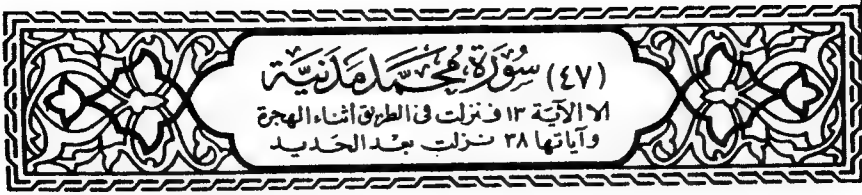 (٤٧) سُورَة مُحَمَّد مَدَنيَّة
الا الآية ١٣ فنزلت فى الطريق أثناء الهجرة
وآياتها ٣٨ نزلت بعد الحديد